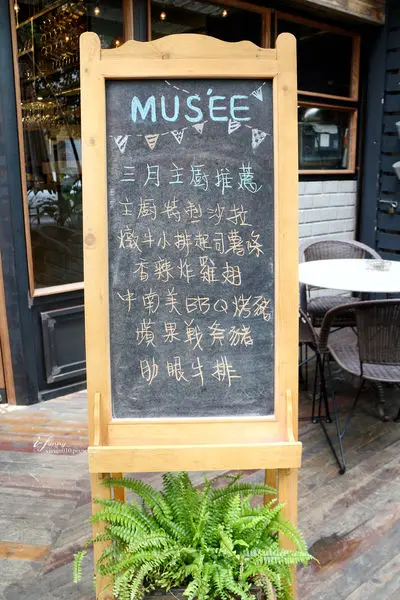 MUSÉE
三月主廚推薦
主廚特製沙拉
燉牛小排起司薯條
香辣炸雞翅
中南美BBQ烤豬
蘋果戰斧豬
肋眼牛排